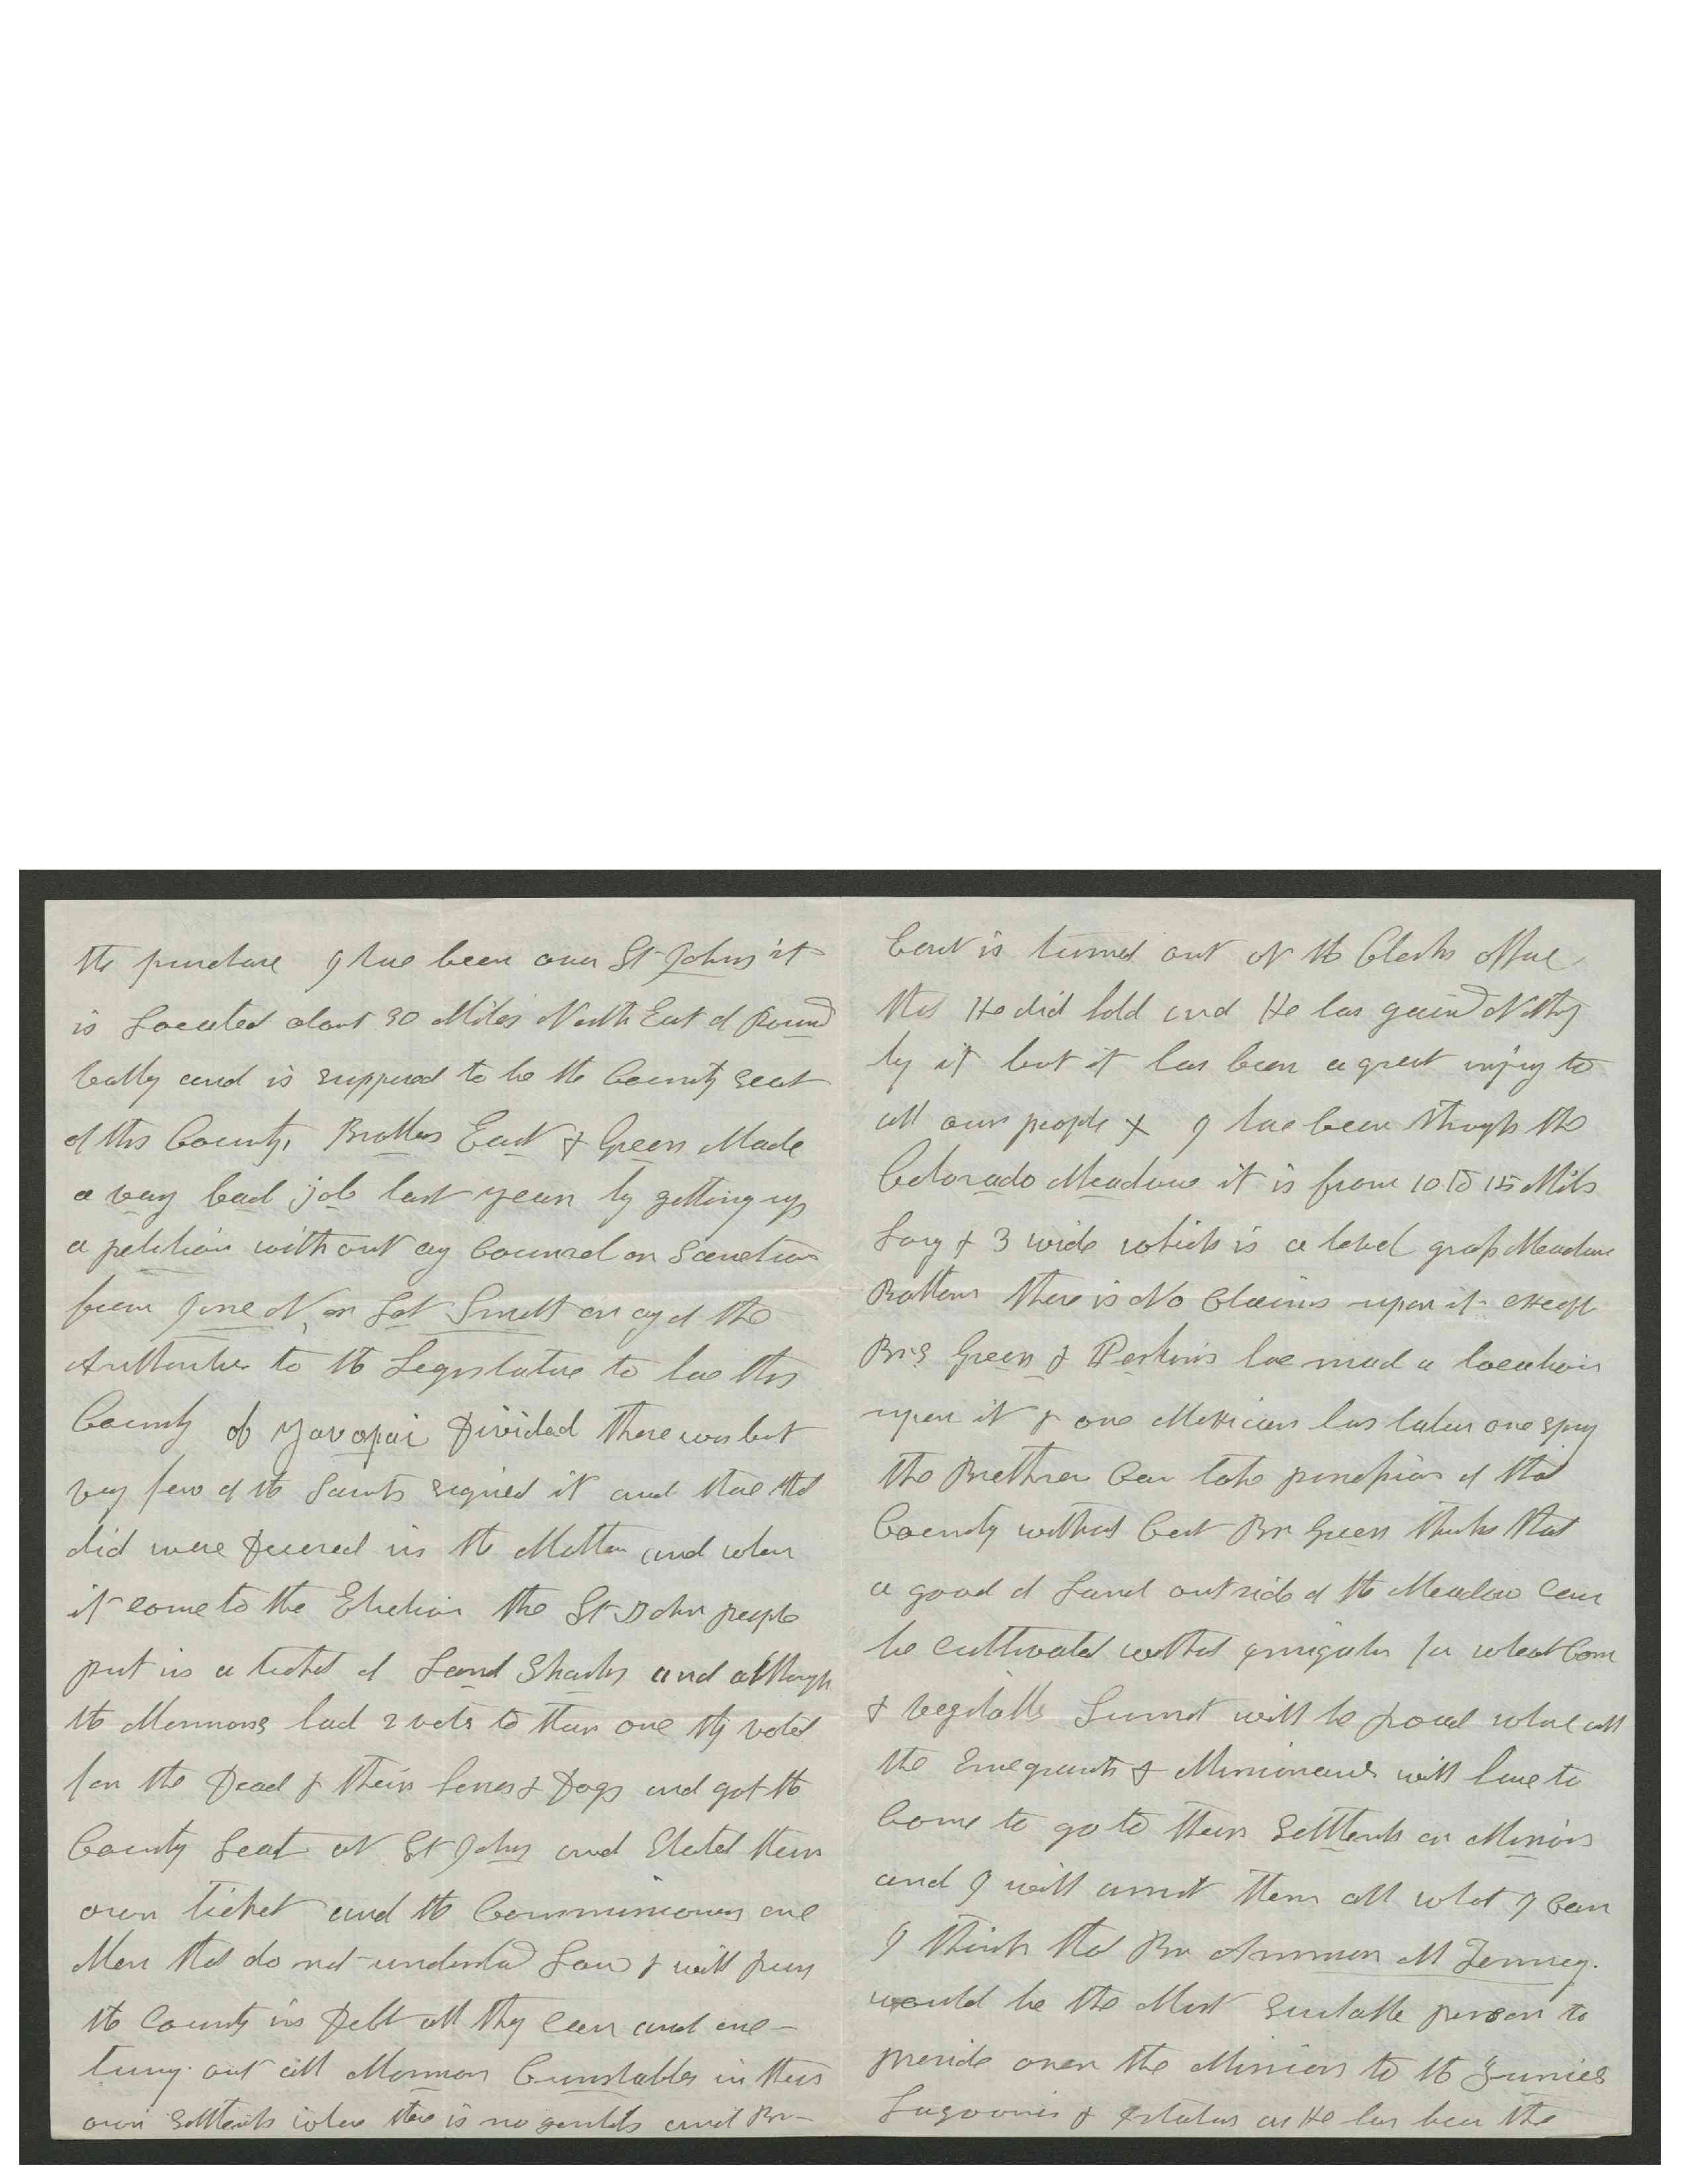 the purchase I have been over St Johns it
is Located about 30 Miles North East of Round
vally and is supposed to be the County seat
of this County, Brothers East & Green Made
a vary bad job last year by getting up
a petition without any Council or Sanction
from Jesse N, or Lot Smith or any of the
Authorities to the Legislature to have this
County of Yavapai Divided there was but
very few of the Saints signed it and those that
did were Decived in the Matter and when
it come to the Election the St John people
put in a ticket of Land Sharks and although
the Mormons had 2 vots to their one they voted
for the Dead & their & Dogs and got the
County Seat at St Johns and Elected their
own ticket and the Commissioners are
Men that do not understand Law & will run
the County in Debt all they can and are
turning out all Mormon Cunstables in their
own Settlents where there is no gentiles and Br
East is turned out of the Clerks offic
that He did hold and He has gained Nothing
by it but it has been a great injury to
all our people & I have been through the
Colorado Meadows it is from 10 to 15 Mils
Long & 3 wide which is a level grass Meadow
Bottom there is No Claims upon it except
Brs Green & Perkins have mad a location
upon it & one Mexican has taken one spring
the Brethren Can take possession of that
County without Cost Br Green thinks that
a good of Land outside of the Meadow can
be cultivated without irrigation for wheat Corn
& vegitable Sunset will be the place whare all
the Emegrants & Missionaries will have to
Come to go to their Settlents or Missions
and I will assist them all what I can
I think that Br Ammon M Tenney.
would be the Most Suitable person to
preside over the Mission to the Zunies
Lagoonies & Islatas as He has been the